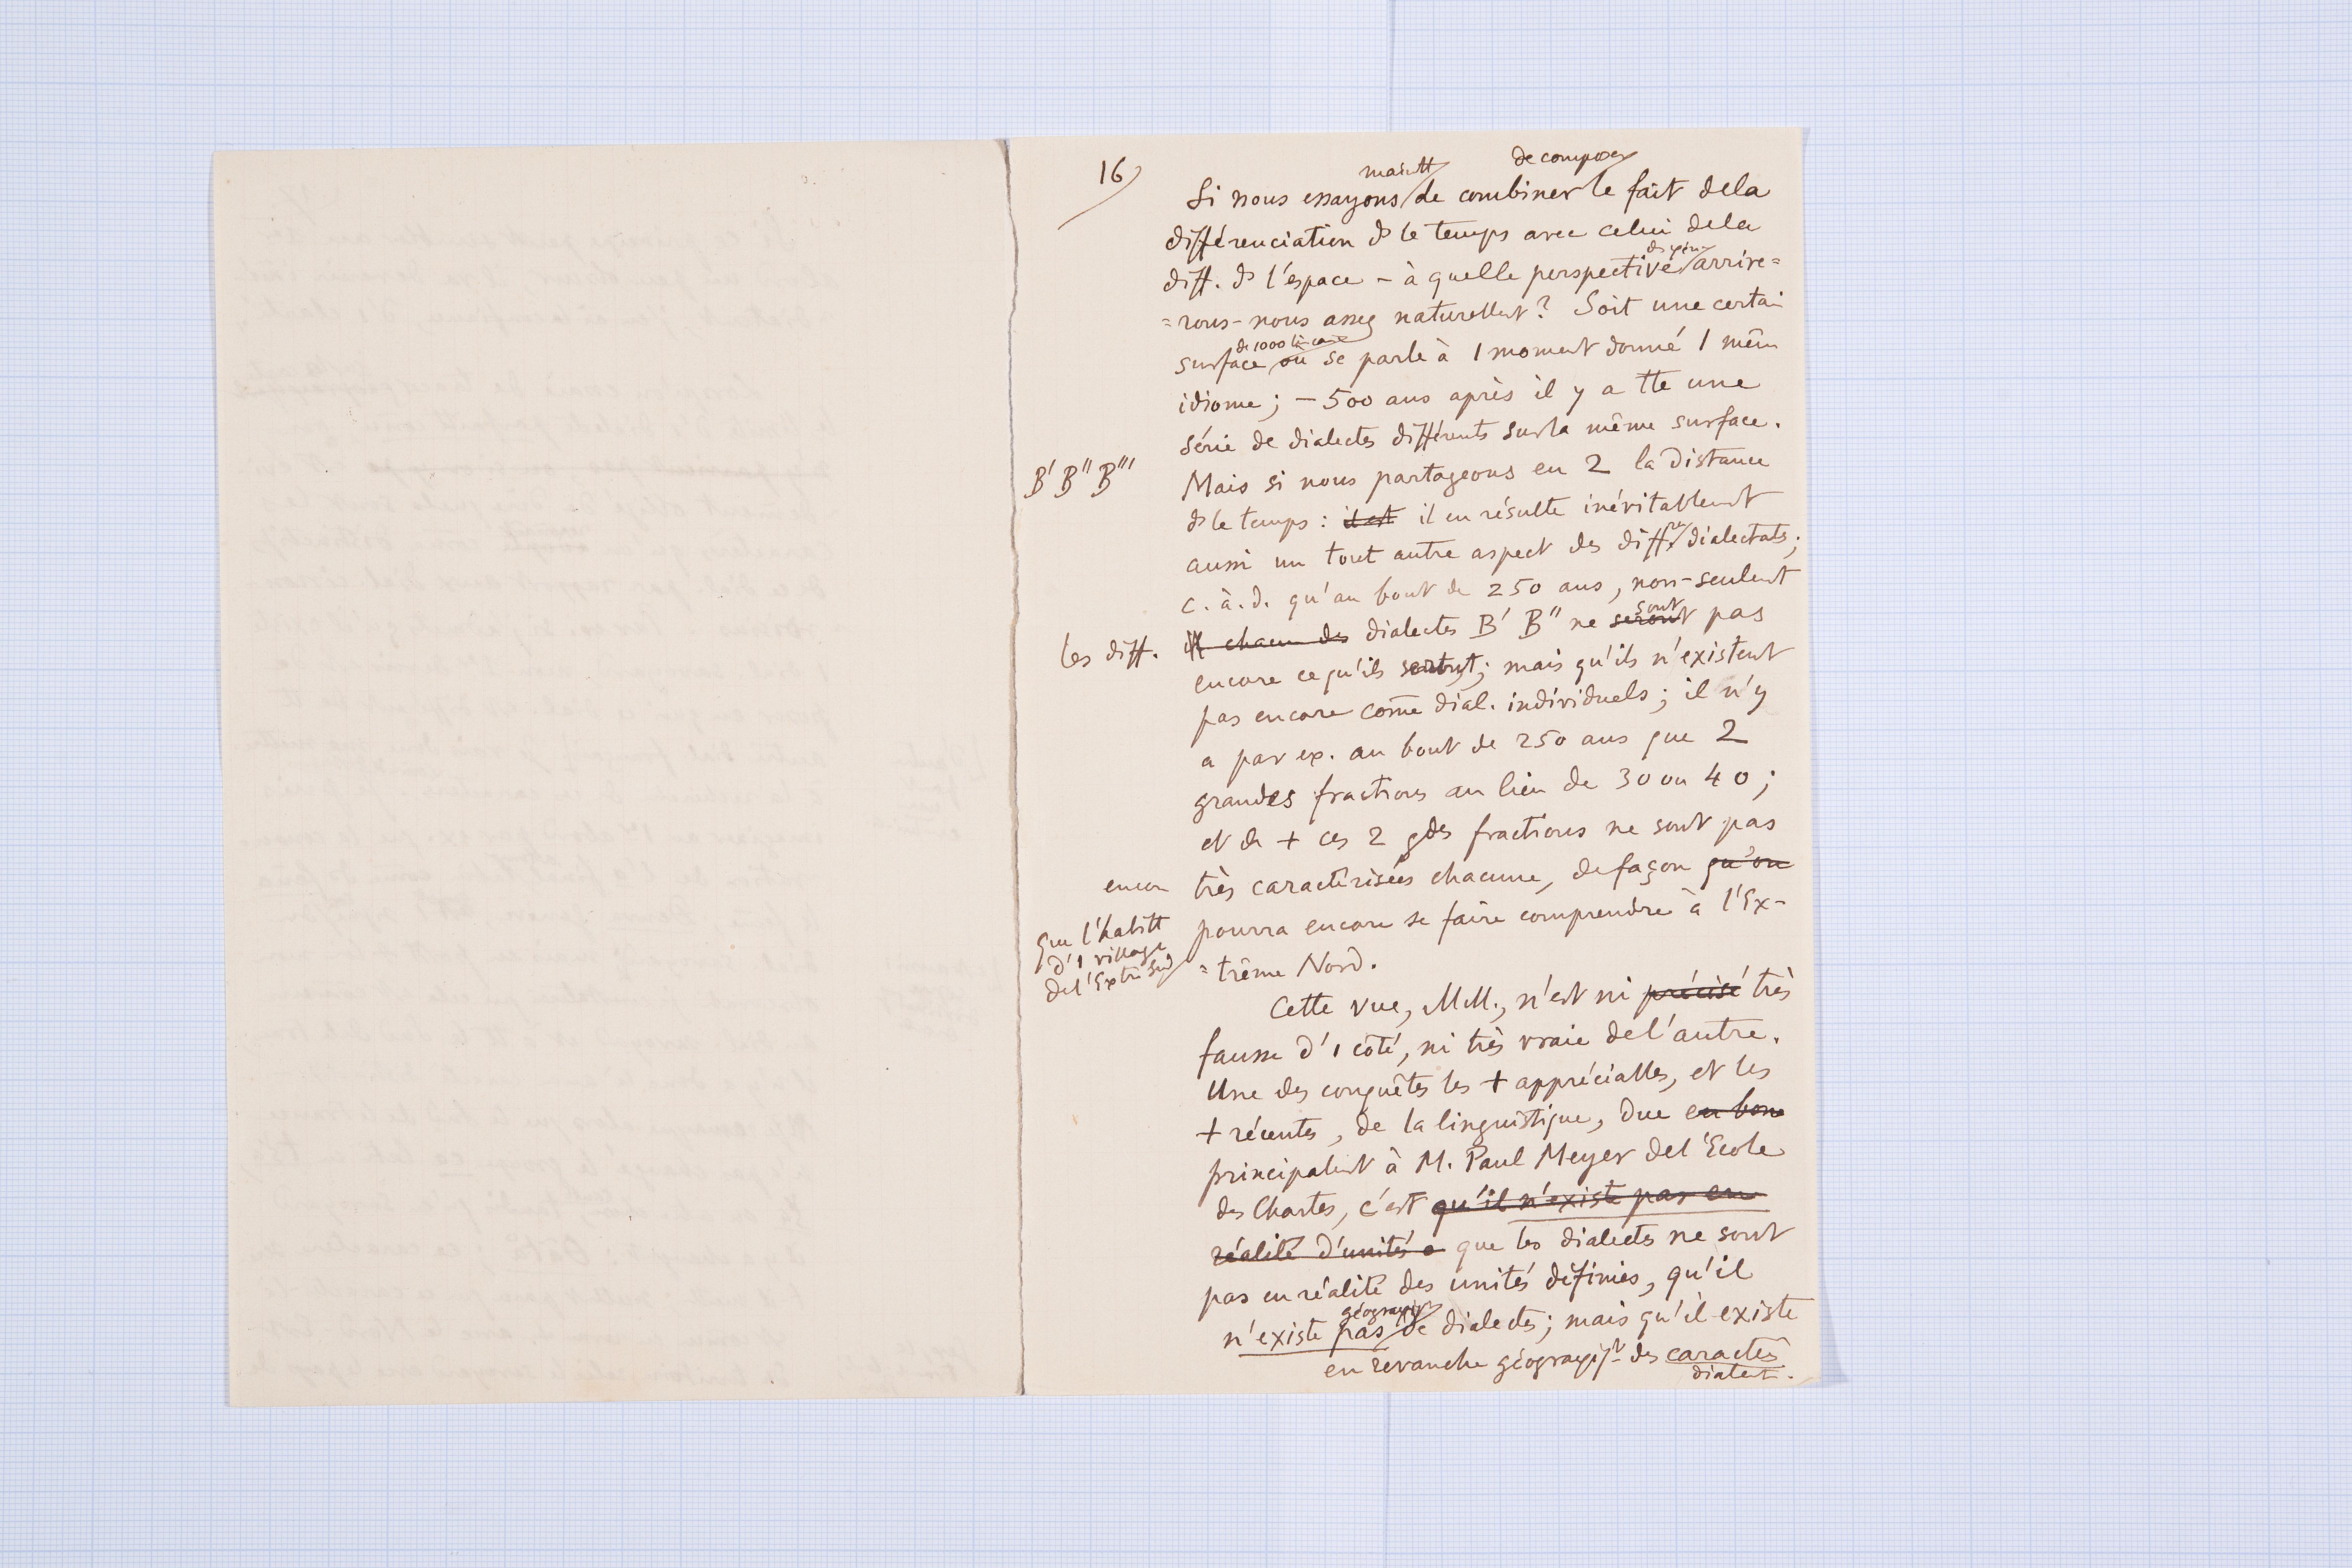 16
maintt de composer
Si nous essayons de combiner le fait de la
différenciation ds le temps avec celui de la
diff. ds l'espace – à quelle perspective arrive=
=rons-nous assez naturellent? Soit une certai
de 1000
surface où se parle à 1 moment donné 1 mêm
idiome; – 500 ans après il y a tte une
série de dialectes différents sur la même surface.
B' B'' B''' Mais si nous partageons en 2 la distance
ds le temps : il est il en résulte inévitablemt
aussi un tout autre aspect des diffces dialectales;
c. à. d. qu'au bout de 250 ans, non-seulemt
sont
les diff. il chacun des dialectes B' B'' ne seront pas
encore ce qu'ils seront; mais qu'ils n'existent
pas encore come dial. individuels; il n'y
a par ex. au bout de 250 ans que 2
grandes fractions au lieu de 30 ou 40;
et de + ces 2 gdes fractions ne sont pas
encor très caractérisées chacune, de façon qu'on
que l'habitt
d'1 village
de l'Extr. Sud
pourra encore se faire comprendre à l'Ex-
=trême Nord.
Cette vue, MM., n'est ni précisé très
fausse d'1 côté, ni très vraie de l'autre.
Une des conquêtes les + appréciables, et les
+ récentes, de la linguistique, due en bone
principalemt à M. Paul Meyer de l'Ecole
des Chartes, c'est qu'il n'existe pas en
réalité d'unités que les dialectes ne sont
pas en réalité des unités définies, qu'il
géographt
n'existe pas de dialectes; mais qu'il existe
en revanche géographt des caractès
dialect.